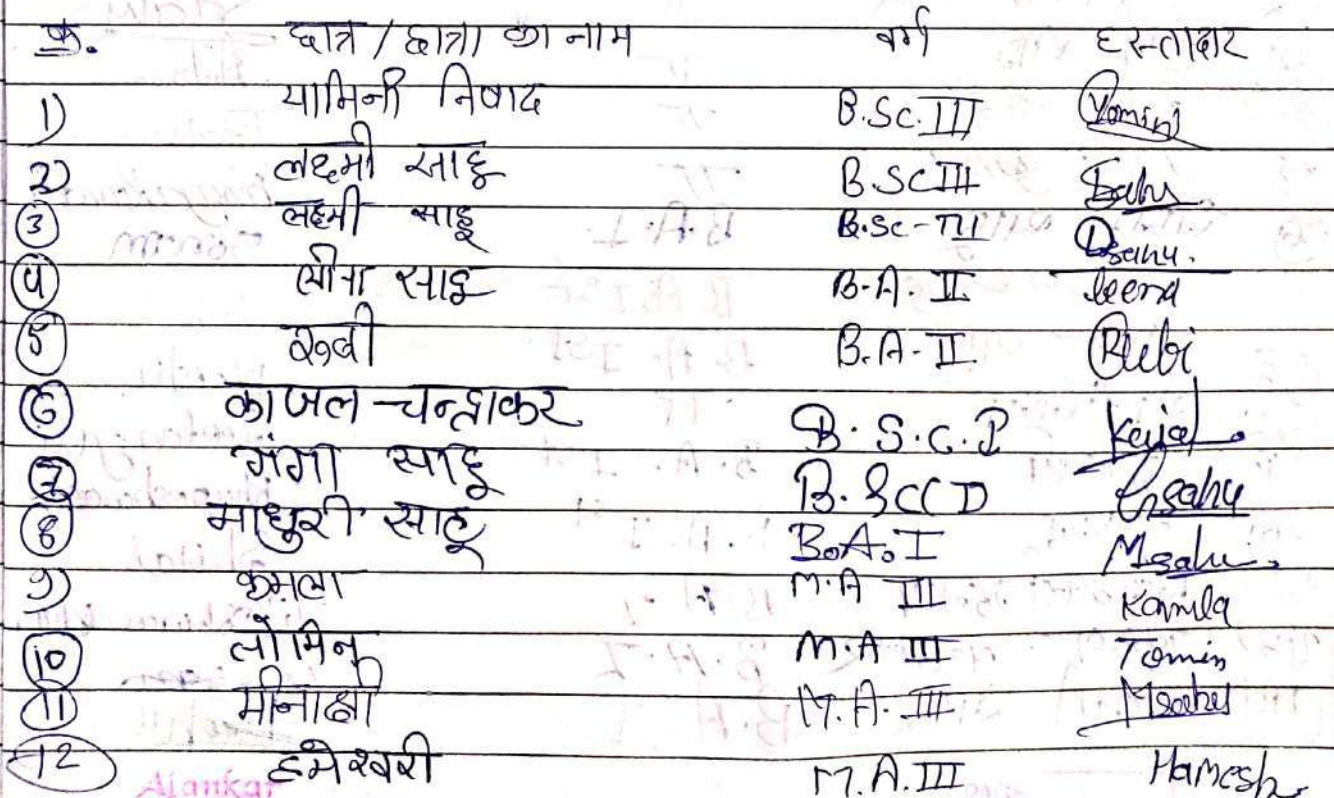 क्र. छात्र / छात्रा का नाम वर्ग हस्ताक्षर
1) यामिनी निषाद B.Sc. III Yamini
2) लक्ष्मी साहू B.SC III Sahu
3 लक्ष्मी साहू B.Sc-III Lsahu.
4 लीना साहू B.A. II leena
5 रूबी B.A-II Rubi
6 काजल चन्द्राकर B.S.C.I Kajal
7 गंगा साहू B.SC Gsahu
8 माधुरी साहू B.A. I Msahu
9) कमला M.A III Kamla
10 M.A III Tomin
11 मीनाक्षी M.A. III Msahu
12 हमेश्वरी M.A. III Hamesh
Alankar